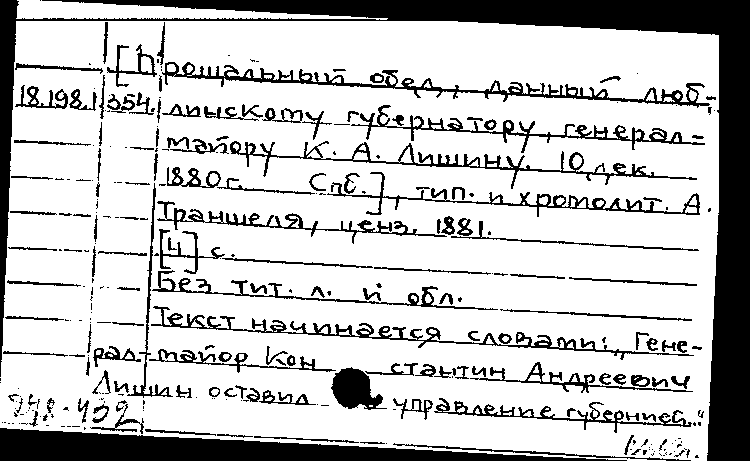 [Прощальный обед, данный люб-
18.198.1.354. линскому губернатору, генерал=
майору К. А. Лишину. 10 дек.
1880 г. Спб.], тип. и хромолит. А.
Траншеля, ценз. 1881.
[4] с.
Без тит. л. и обл.
Текст начинается словами: „Гене-
рал-майор Константин Андреевич
Лишин оставил управление губернией..."
248-402